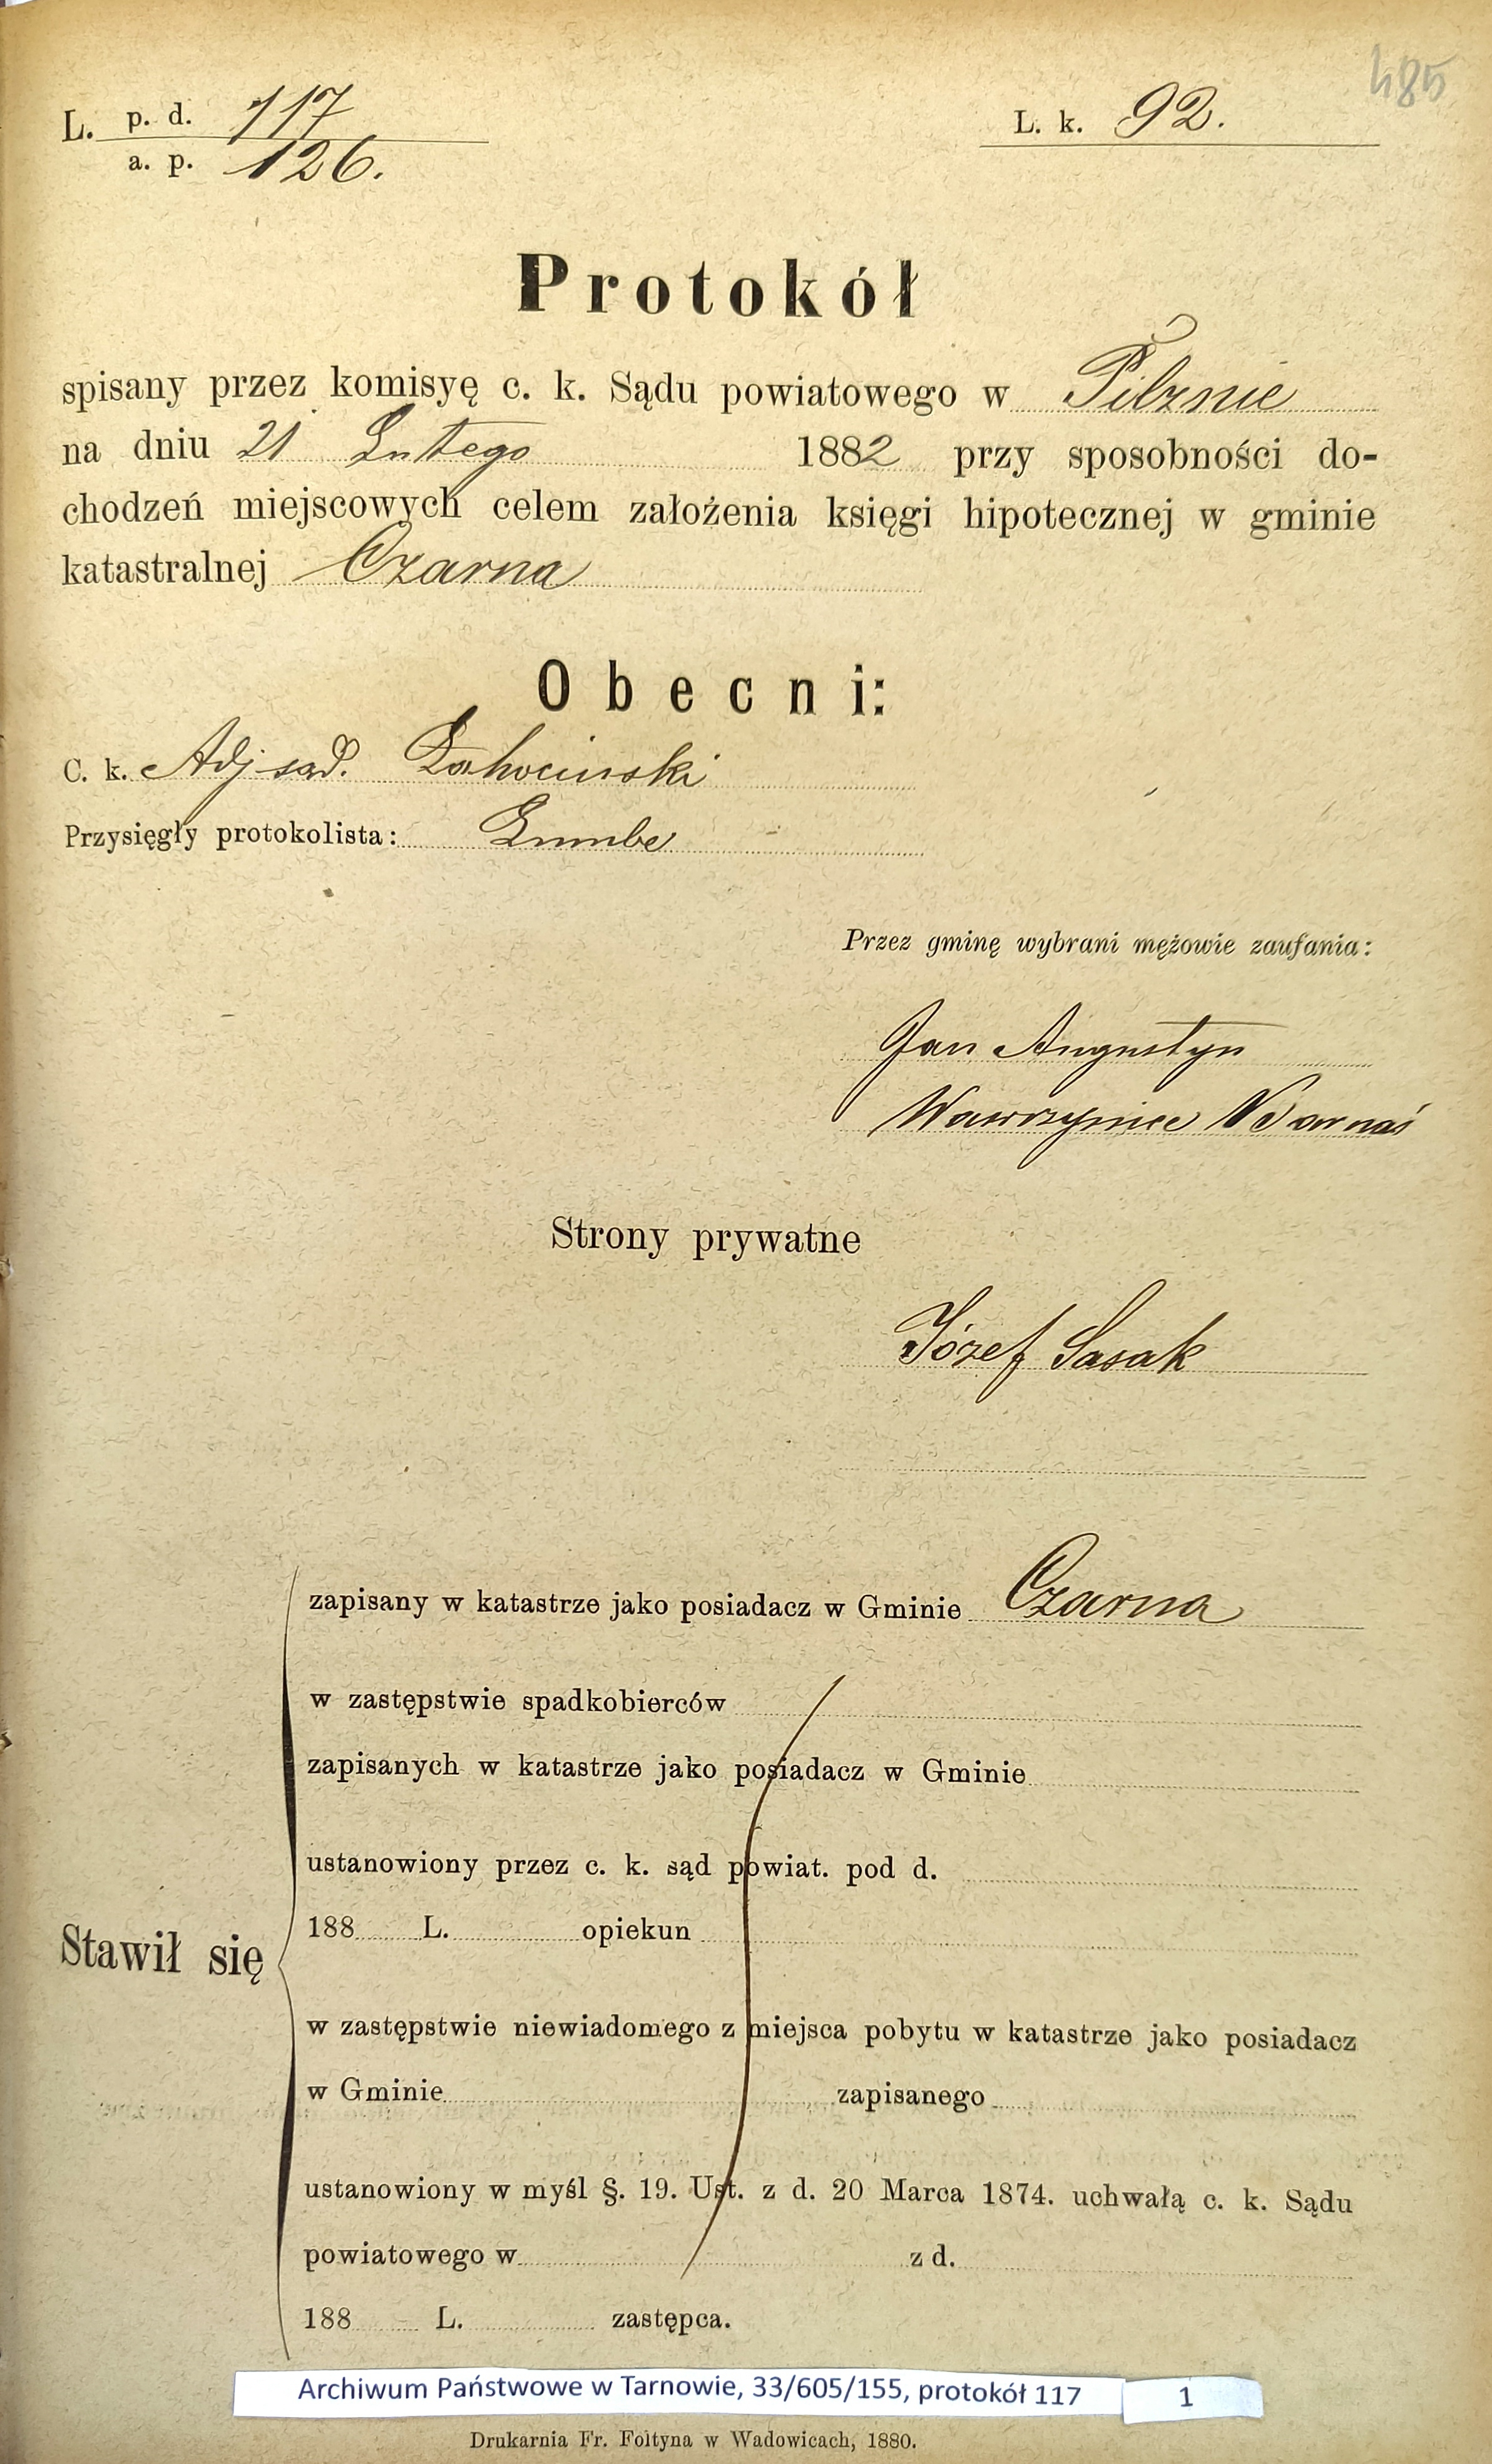 485
L. p. d. 117
a. p. 126.
L. k. 92.
Protokół
spisany przez komisyę c. k. Sądu powiatowego w Pilznie
na dniu 21 Lutego 1882 przy sposobności do-
chodzeń miejscowych celem założenia księgi hipotecznej w gminie
katastralnej Czarna
Obecni:
C. k. Adj sąd.
Przysięgły protokolista:
Przez gminę wybrani mężowie zaufania:
Jan Augustyn
Wawrzyniec Warnaś
Strony prywatne
Józef Sasak
zapisany w katastrze jako posiadacz w Gminie Czarna
w zastępstwie spadkobierców
zapisanych w katastrze jako posiadacz w Gminie
ustanowiony przez c. k. sąd powiat. pod d.
188 L. opiekun
Stawił się
w zastępstwie niewiadomego z miejsca pobytu w katastrze jako posiadacz
w Gminie zapisanego
ustanowiony w myśl §. 19. Ust. z d. 20 Marca 1874. uchwałą c. k. Sądu
powiatowego w z d.
188 L. zastępca.
Archiwum Państwowe w Tarnowie, 33/605/155, protokół 117 1
Drukarnia Fr. Foltyna w Wadowicach, 1880.